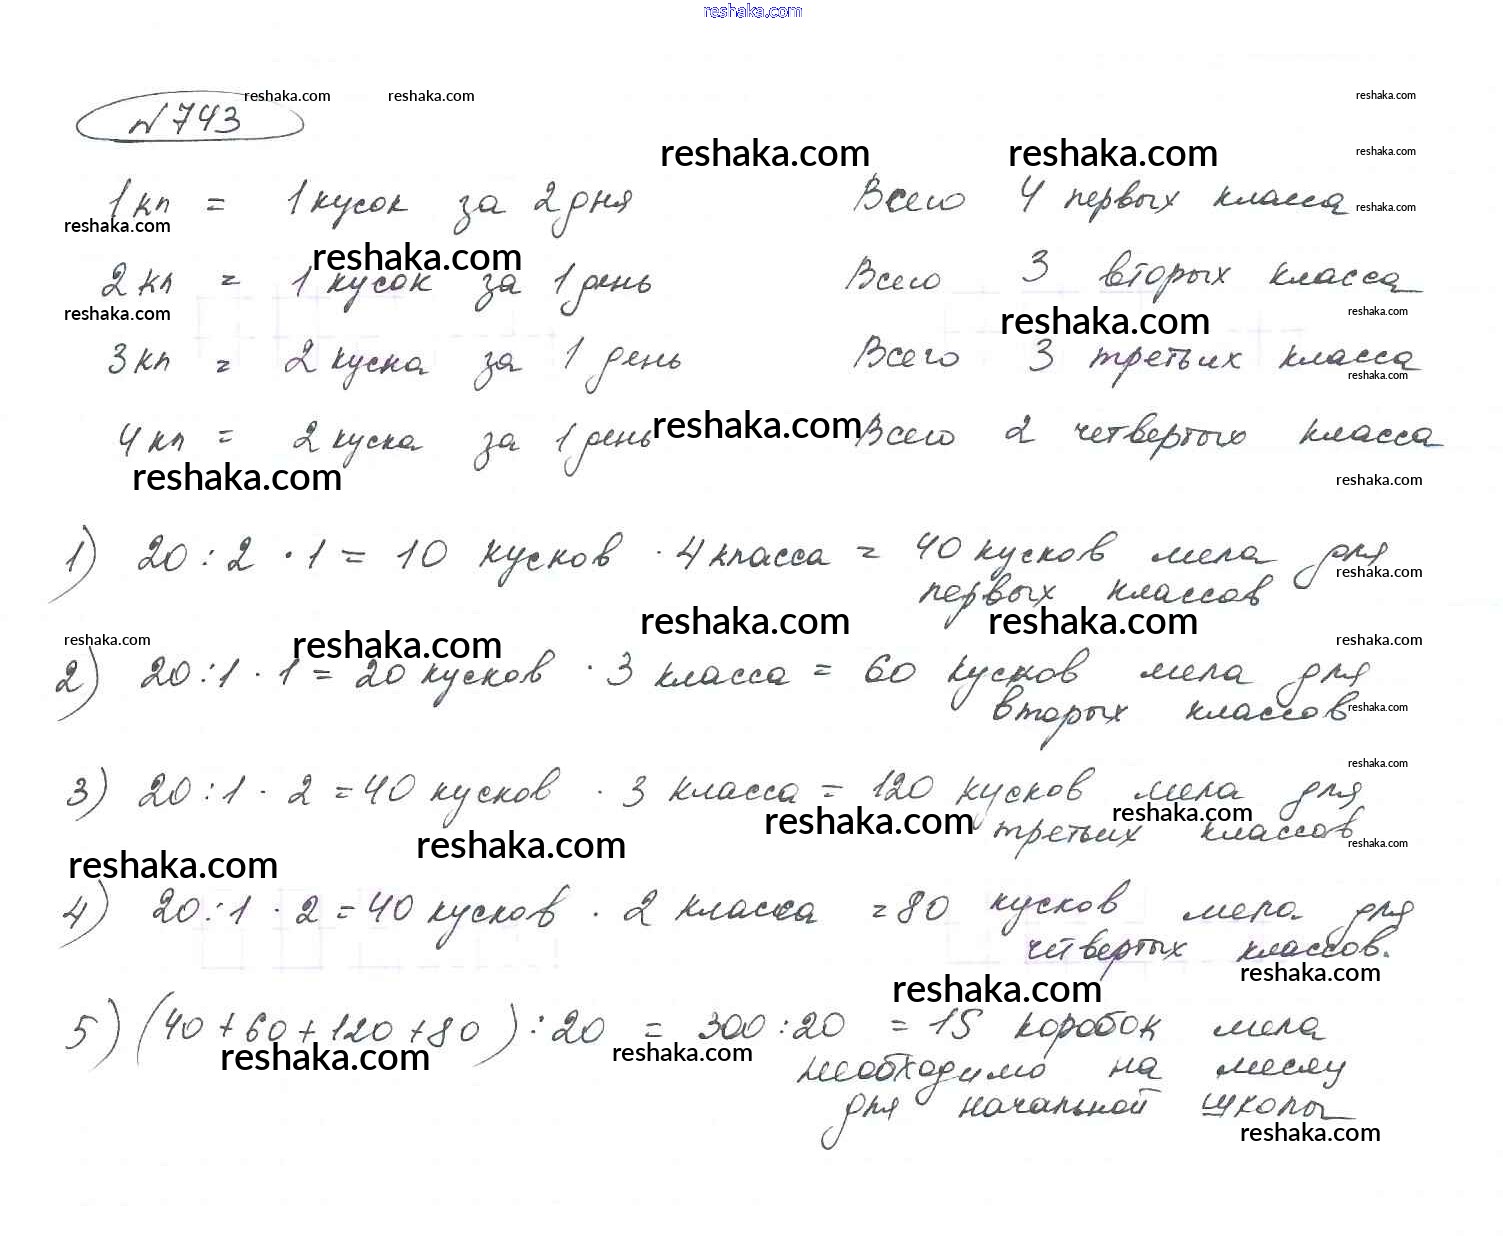 reshaka.com
№743
reshaka.com reshaka.com reshaka.com
reshaka.com reshaka.com reshaka.com
1 кл = 1 кусок за 2 дня Всего 4 первых класса reshaka.com
reshaka.com
reshaka.com
2 кл = 1 кусок за 1 день Всего 3 вторых класса
reshaka.com reshaka.com reshaka.com
3 кл = 2 куска за 1 день Всего 3 третьих класса
reshaka.com
4 кл = 2 куска за 1 день reshaka.com Всего 2 четвертых класса
reshaka.com reshaka.com
1) 20 : 2 · 1 = 10 кусков · 4 класса = 40 кусков мела для
reshaka.com
первых классов
reshaka.com reshaka.com reshaka.com reshaka.com reshaka.com
2) 20 : 1 · 1 = 20 кусков · 3 класса = 60 кусков мела для
вторых классов reshaka.com
reshaka.com
3) 20 : 1 · 2 = 40 кусков · 3 класса = 120 кусков мела для
reshaka.com reshaka.com
третьих классов
reshaka.com reshaka.com reshaka.com
4) 20 : 1 · 2 = 40 кусков · 2 класса = 80 кусков мела для
четвертых классов.
reshaka.com reshaka.com
5) (40 + 60 + 120 + 80) : 20 = 300 : 20 = 15 коробок мела
reshaka.com reshaka.com
необходимо на месяц
для начальной школы
reshaka.com